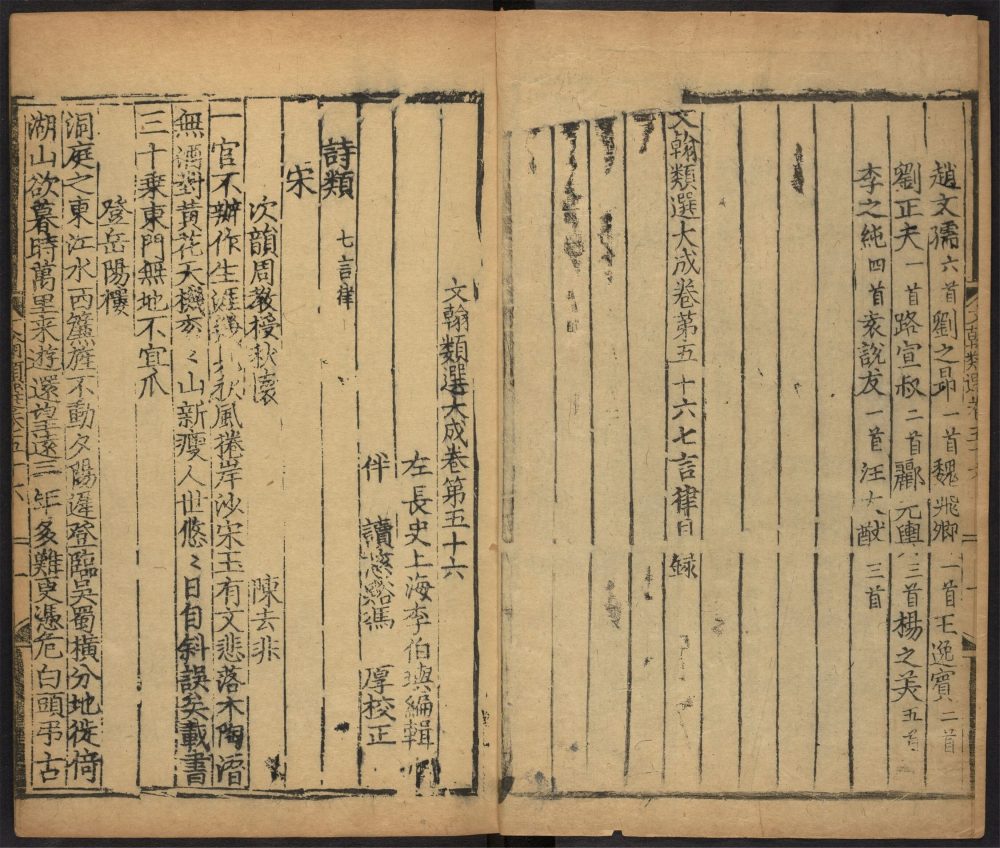 趙文孺六首劉之昂一首魏飛卿一首王逸賓二首
劉正夫一首路宣叔二首酈元輿三首楊之美五首
李之純四首袁說友一首汪大猷三首
文翰類選大成卷第五十六七言律目錄
文翰類選大成卷第五十六
左長史上海李伯璵編輯
伴讀慈谿馮厚校正
詩類七言律
宋
次韻周教授秋懷 陳去非
一官不辦作生涯幾見秋風捲岸沙宋玉有文悲落木陶潛
無酒對黃花天機衮〻山新瘦人世悠〻日自斜誤矣載書
三十乗東門無地不宜瓜
登岳陽樓
洞庭之東江水西簾旌不動夕陽遲登臨吳蜀橫分地徙倚
湖山欲暮時萬里来遊還望遠三年多難更憑危白頭弔古